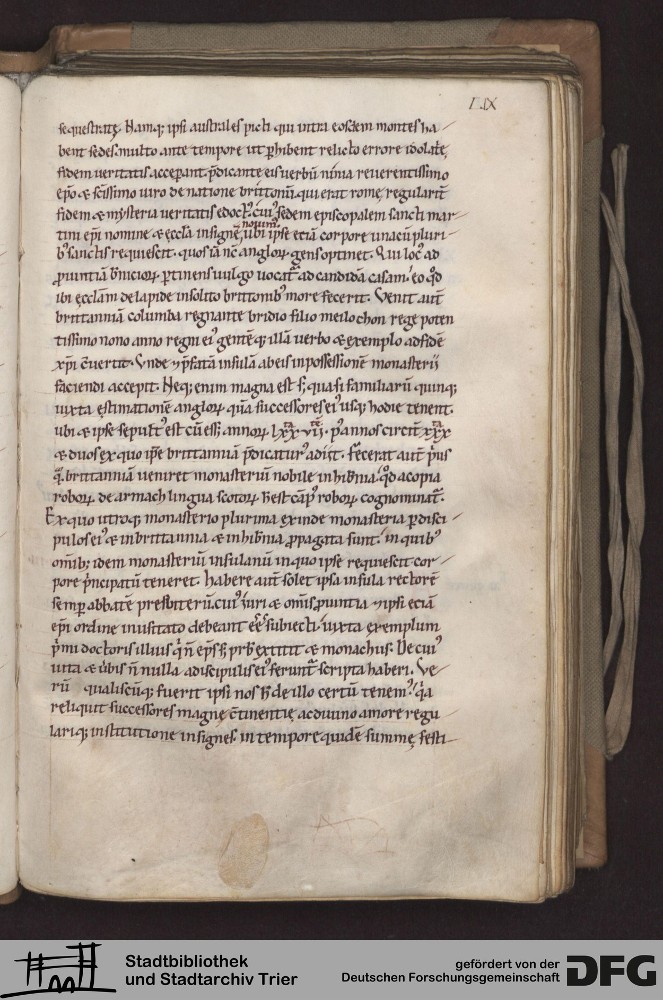 LIX
sequestratę. Namq; ipsi australes picti qui intra eosdem montes ha
bent sedes. multo ante tempore ut phibent relicto errore idolatrię,
fidem ueritatis acceperant p̄dicante eis uerbū ninia reuerentissimo
ep̄o & sc̄issimo uiro de natione brittonū. qui erat romę regularit̄
fidem & mysteria ueritatis edoct᾽. cui᾽ sedem episcopalem sancti mar
tini ep̄i nomine & ęccła insignē, ubi ipse etiā corpore unacū pluri
b᾽ sanctis requiescit. quos iā nc̄ anglorꝝ gens optinet. Qui loc᾽ ad
ꝓuintiā b̄niciorꝝ ptinens uulgo uocat᾽ ad candidā casam. eo qd̄
ibi ęccłam de lapide insolito brittonib᾽ more fecerit. Venit aut̄
brittanniā columba regnante bridio filio meilochon rege poten
tissimo nono anno regni ei᾽ gentēq; illā uerbo & exemplo ad fidē
xp̄i c̄uertit. Vnde & p̄fatā insulā ab eis in possessionē monasterij
faciendi accepit. Neq; enim magna est s; quasi familiarū quinq;
iuxta estimationē anglorꝝ. quā successores ei᾽ usq; hodie tenent.
ubi & ipse sepult᾽ est cū ess; annorꝝ lxx vii. p᾽ annos circit̄ xxx
& duos ex quo ipse brittanniā p̄dicatur᾽ adiit. Fecerat aut̄ p̄us
q̄ brittanniā ueniret monasteriū nobile in hib̄nia. qd̄ a copia
roborꝝ. dearmach lingua scotorꝝ. h̄ est cāp᾽ roborꝝ cognominat᾽.
Ex quo utroq; monasterio plurima exinde monasteria p disci
pulos ei᾽ & in brittannia & in hib̄nia ꝓpagata sunt. in quib᾽
om̄ib; idem monasteriū insulanū in quo ipse requiescit cor
pore p̄ncipatū teneret. Habere aut̄ solet ipsa insula rectorē
semp abbatē presbiterū. cui᾽ iuri & om̄is ꝓuintia & ipsi etiā
ep̄i ordine inusitato debeant eē subiecti. iuxta exemplum
p̄mi doctoris illius q̄ n̄ ep̄s s; prb̄r extitit & monachus. De cui᾽
uita & uerbis n̄ nulla a discipulis ei᾽ ferunt᾽ scripta haberi. Ve
rū qualiscūq; fuerit ipsi nos h̄ de illo certū tenem᾽. qa
reliquit successores magnę c̄tinentię ac diuino amore regu
lariq; institutione insignes. in tempore quidē summę festi
Stadtbibliothek
und Stadtarchiv Trier
gefördert von der
Deutschen Forschungsgemeinschaft
DFG